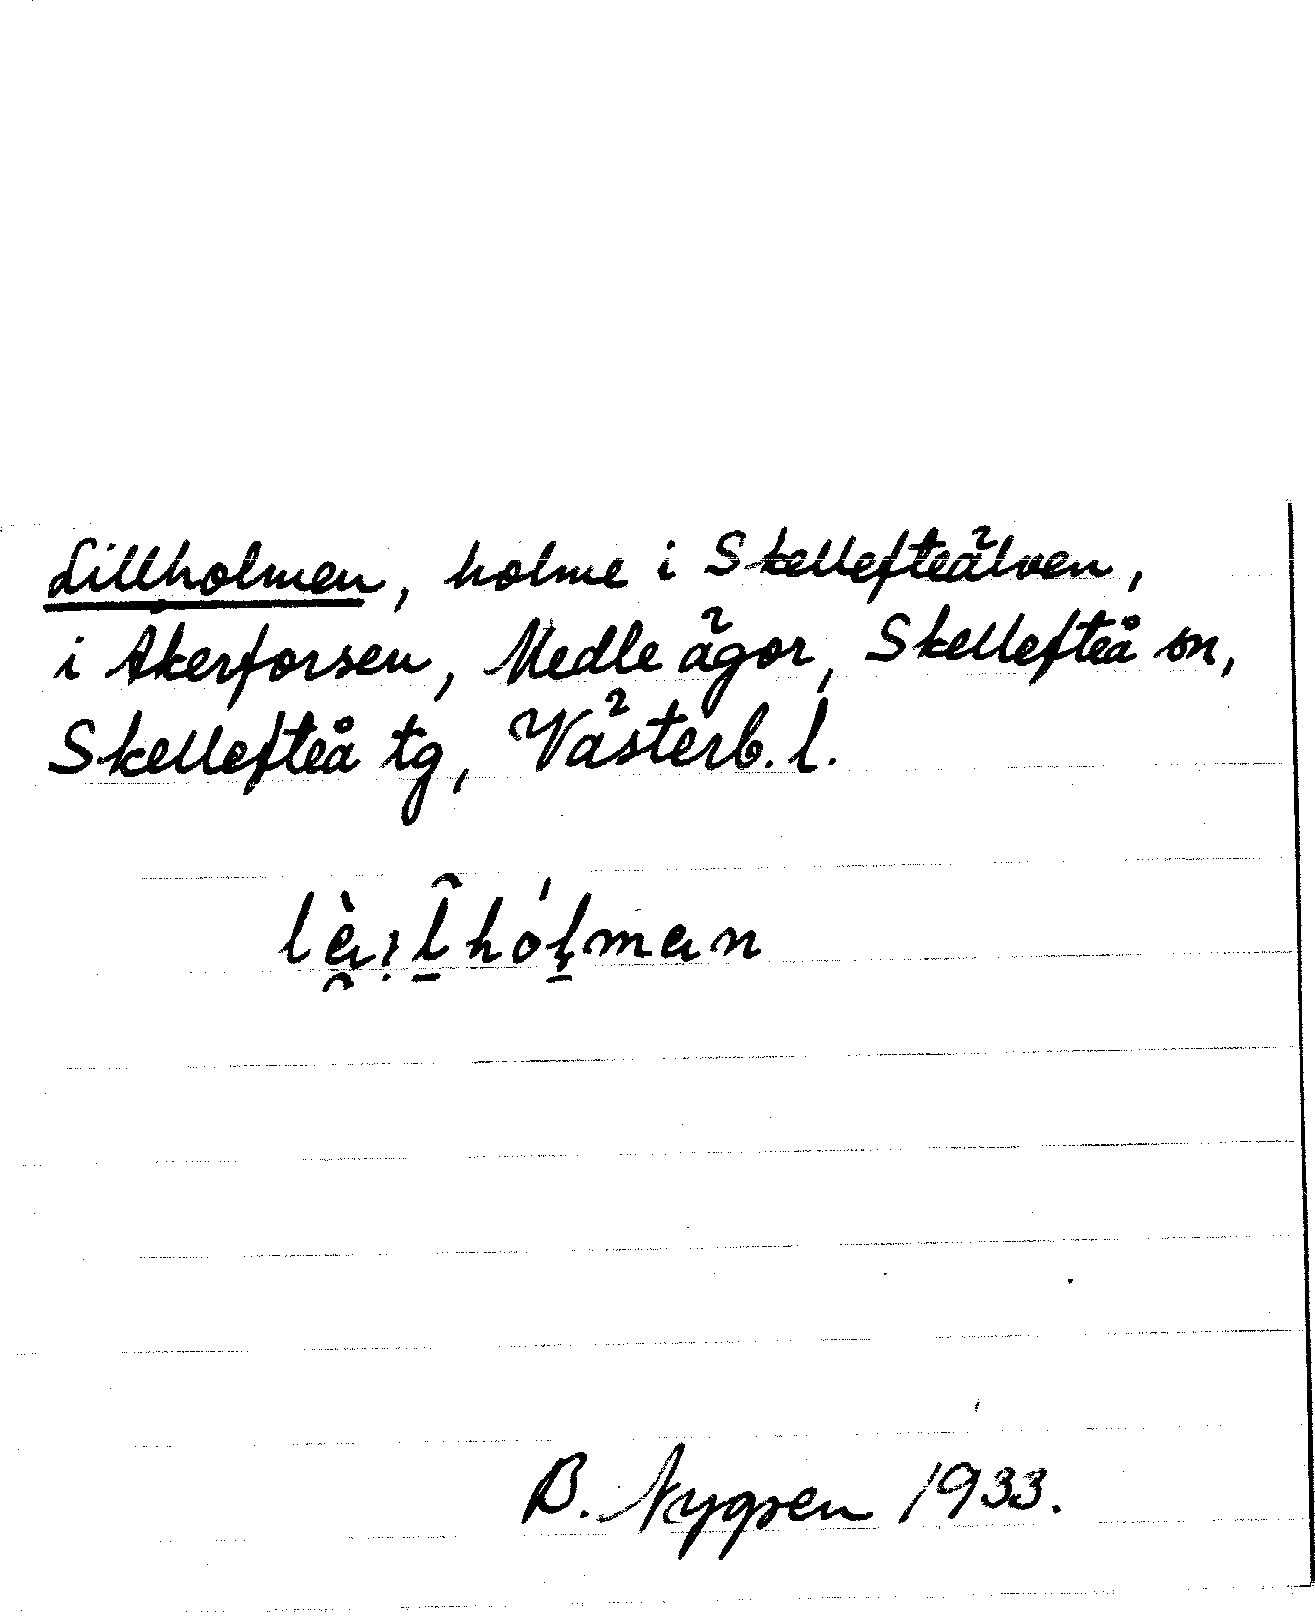 Lillholmen, holme i Skellefteälven,
i Åkerforsen, Medle ägor, Skellefteå sn,
Skellefteå tg, Västerb. l.
B. Nygren 1933.